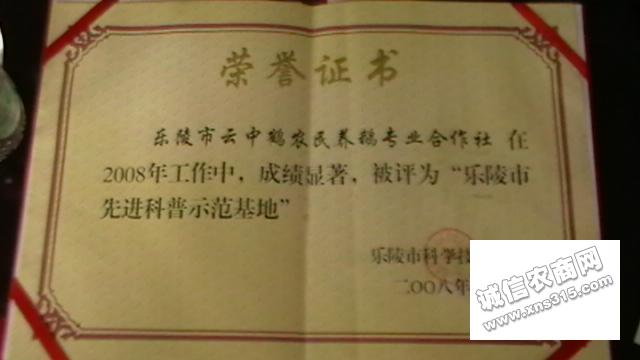 荣誉证书
乐陵市云中鹤农民养鹅专业合作社 在
2008年工作中，成绩显著，被评为“乐陵市
先进科普示范基地”
乐陵市科学技
二〇〇八年
诚信农商网
www.xns315.com